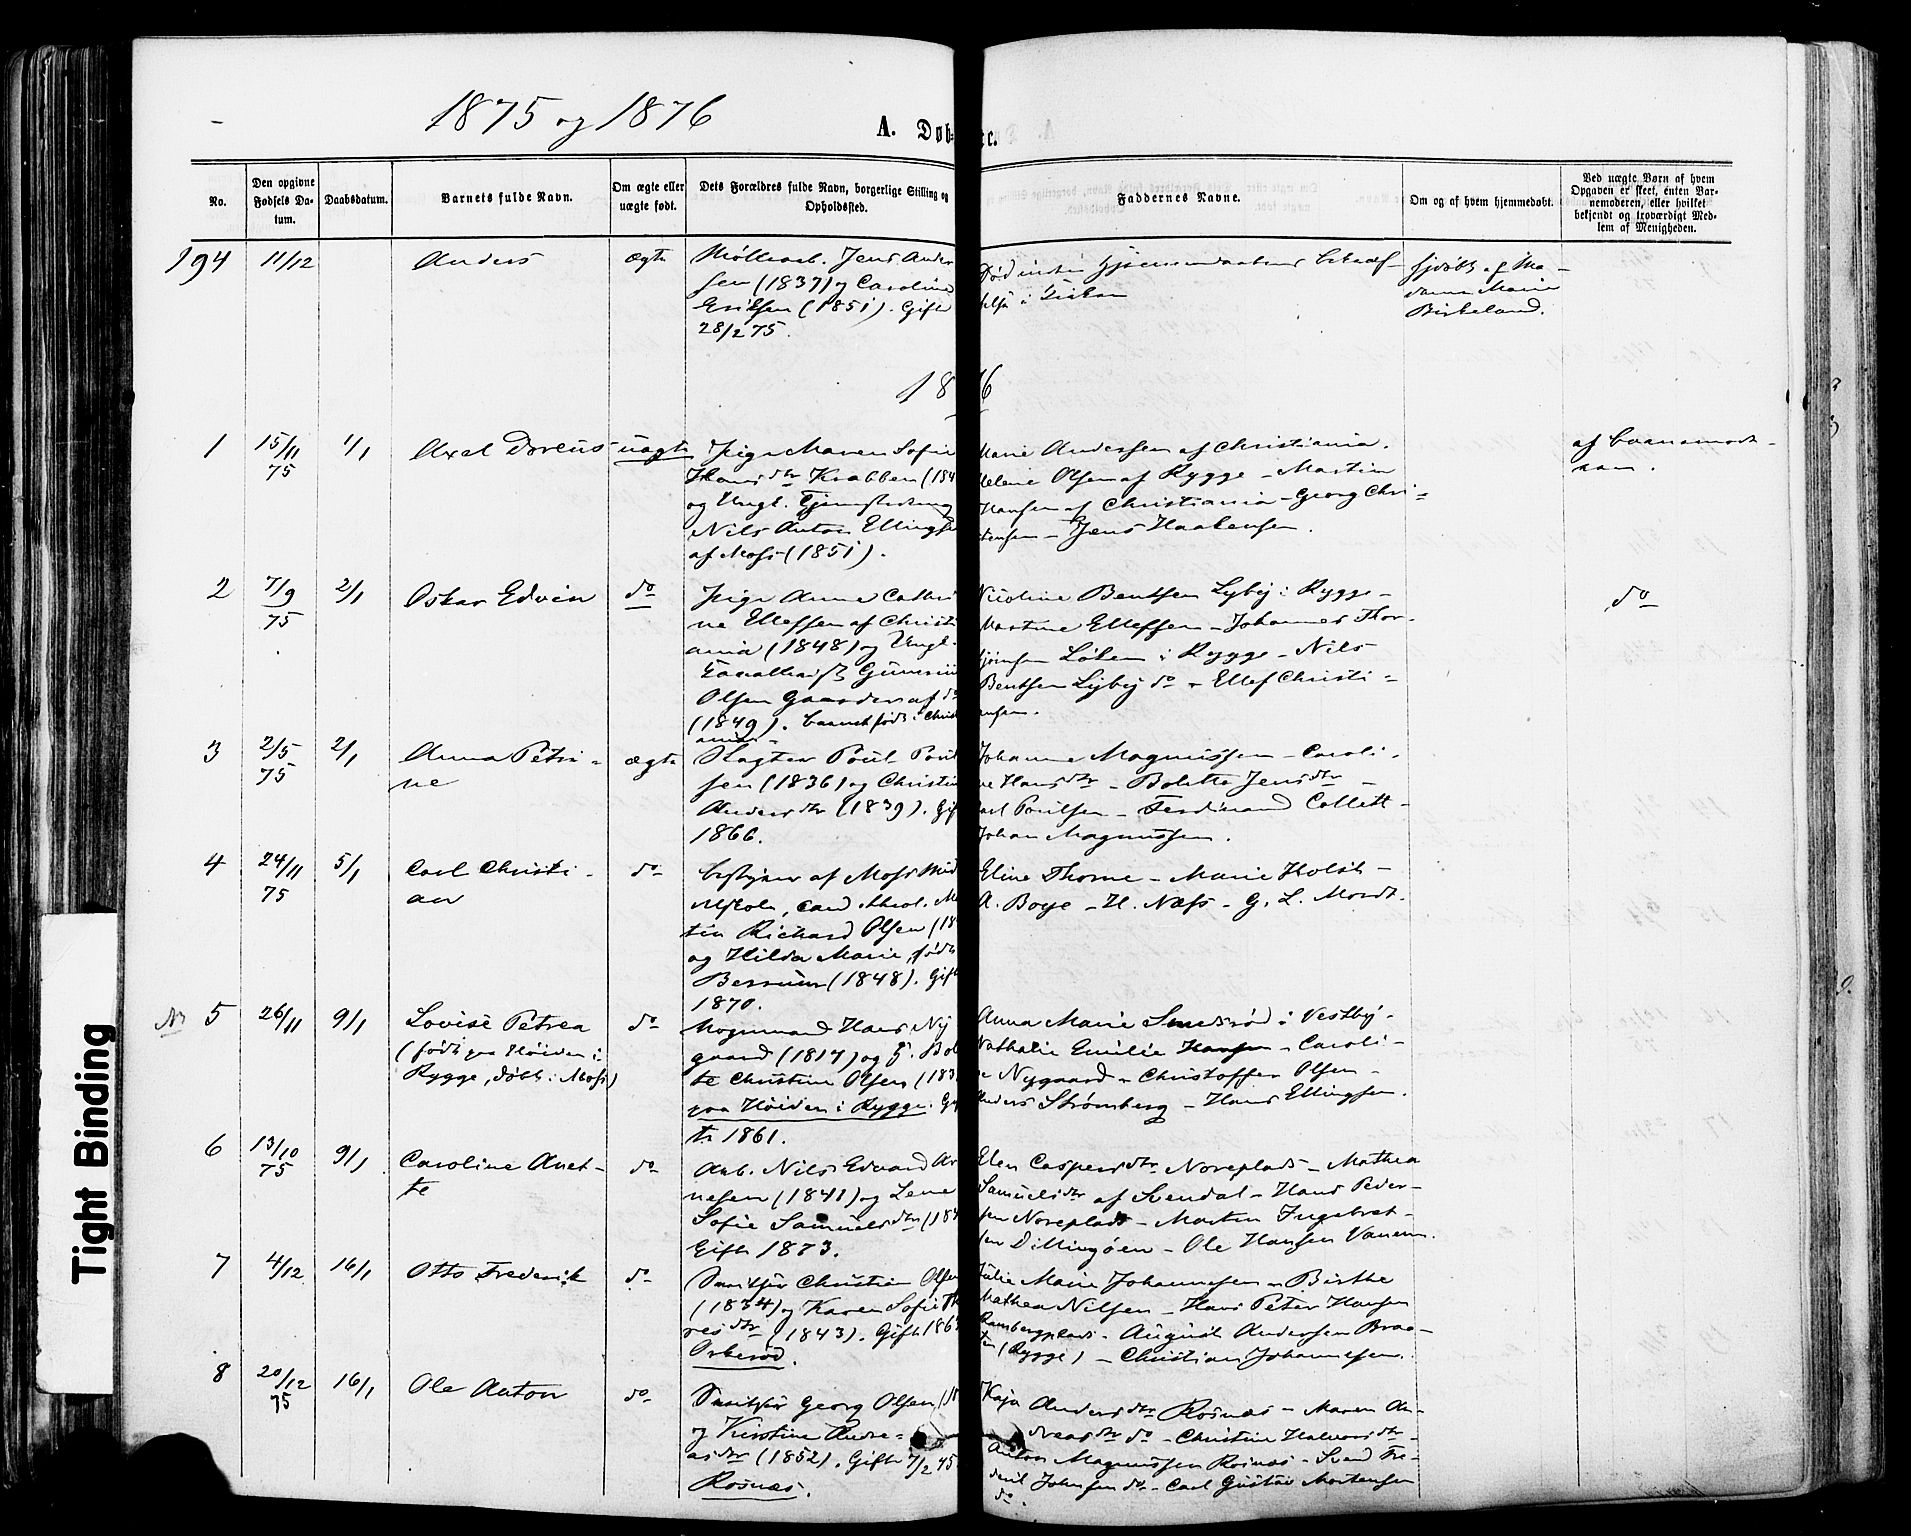 1875 og 1876
A. Døb
te.
No.
Den opgivne Fødsels Datum.
Daabsdatum.
Barnets fulde Navn.
Om ægte eller uægte født.
Dets Forældres fulde Navn, borgerlige Stilling og Opholdssted.
Faddernes Navne.
Om og af hvem hjemmedøbt.
Ved uægte Børn af hvem Opgaven er skeet, enten Barnemoderen, eller hvilket bekjendt og troværdigt Medlem af Menigheden.
194 11/12 Anders ægte
Møllearb. Jens Ander
sen (1837) og Caroline
Eriksen (1851). Gift
28/2 75.
Død inden Hjemmedaaben
i Kirken
hjdøbt af Ma-
dame Marie
Birkeland.
1876
1 15/11 75 1/1 Axel Doreus uægte
Pige Maren Sofie
Hansdtr Krabben (184
og Ungk.
Nils Anton Ellingse
af Moss (1851).
Marie Andersen af Christiania.
Helene Olsen af Rygge - Martin
Hansen af Christiania - Georg Chri-
stensen - Jens Haakensen.
af Barnemode-
ren.
2 7/9 75 2/1 Oskar Edvin do
Pige Anne Cathri
ne Ellefsen af Christi
ania (1848) og Ungk.
Olsen Gaarder af do
(1849). barnet født i Christ
ania
Nicoline Bentsen Lyby i Rygge -
Martine Ellefsen - Johannes Thor-
bjørnsen Løken i Rygge - Nils
Bentsen Lyby do - Ellef Christi-
ansen.
do
3 2/5 75 2/1 Anna Petri-
ne
ægte
Slagter Poul Poul
sen (1836) og Christin
Andersdtr (1839). Gif
1866.
Johanne Magnussen - Caroli-
ne Hansdtr - Bolette Jensdtr -
Carl Poulsen - Ferdinand Collett -
Johan Magnussen.
4 24/11 75 5/1 Carl Christi-
an
do
bestyrer af Moss Mid
delskole, cand. theol. Mar
tin Richard Olsen (18
og Hilda Marie, født
Berrum (1848). Gift
1870.
Eline Thorne - Marie Holst -
A. Boye - H. Næss - G. L. Mordt.
No 5 26/11 9/1 Lovise Petrea
(født paa Høiden i
Rygge, døbt i Moss)
do
Vognmand Hans Ny
gaard (1817) og H. Bol
te Christine Olsen (183
paa Høiden i Rygge. Gif
te 1861.
Anna Marie Smedsrød i Vestby -
Nathalie Emilie Hansen - Caroli-
ne Nygaard - Christoffer Olsen -
Anders Strømberg - Hans Ellingsen.
6 13/10 75 9/1 Caroline Anet-
te
do
Arb. Nils Edvard Ar
nesen (1841) og Lene
Sofie Samuelsdtr (184
Gift 1873.
Elen Caspersdtr Noreplads - Mathea
Samuelsdtr af Svendal - Hans Peder-
sen Noreplads - Morten Ingebret-
sen Dillingøen - Ole Hansen Vanem.
7 4/12 16/1 Otto Frederik do
Snitkjør Christian Olsen
(1834) og Karen Sofie Th
resdtr (1843). Gift 186
Orkerød.
Julie Marie Johannesen - Birthe
Mathea Nilsen - Hans Peter Hansen
Rambergplads - August Andersen Braa-
ten (Rygge) - Christian Johannesen.
8 20/12 75 16/1 Ole Anton do
Georg Olsen (18
og Kirstine Andre-
asdtr (1852). Gift 7/2 75
Rosnæs.
Kaja Andersdtr Rosnæs - Maren An-
dreasdtr do - Christine Halvorsdtr -
Anton Magnussen Rosnæs - Svend Fre-
derik Johnsen do - Carl Gustav Mortensen
do.
Tight Binding